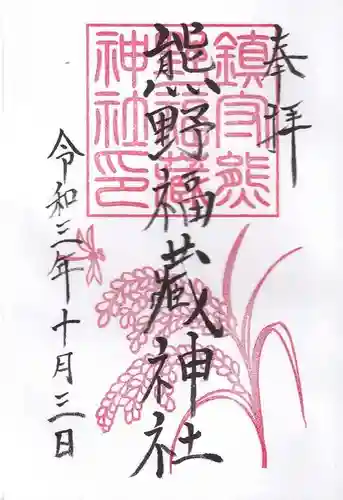 奉拝
鎮守熊
野福蔵
神社印
熊野福蔵神社
令和三年十月三日